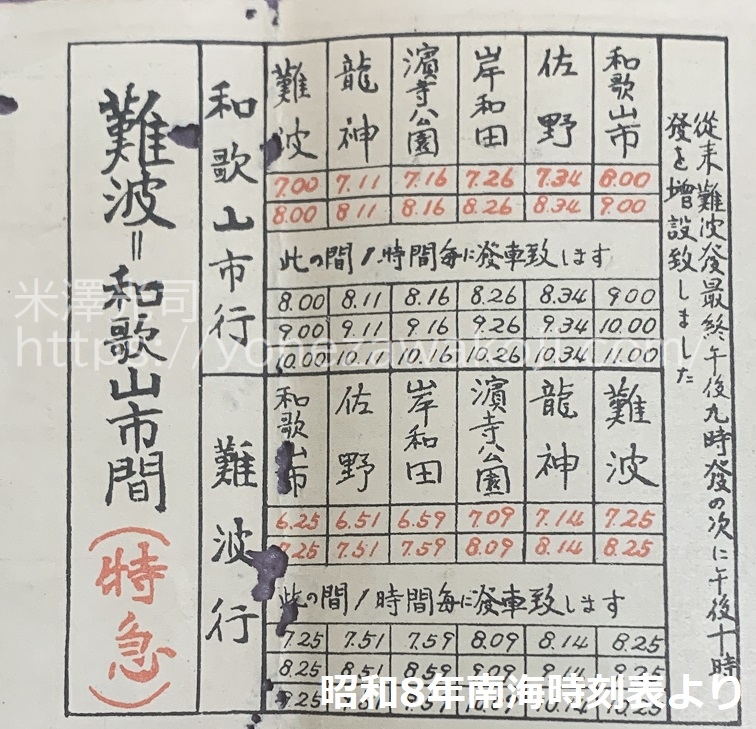 難波=和歌山市間(特急)
和歌山市行
難波 龍神 濱寺公園 岸和田 佐野 和歌山市
7.00 7.11 7.16 7.26 7.34 8.00
8.00 8.11 8.16 8.26 8.34 9.00
此の間1時間毎に發車致します
8.00 8.11 8.16 8.26 8.34 9.00
9.00 9.11 9.16 9.26 9.34 10.00
10.00 10.11 10.16 10.26 10.34 11.00
難波行
和歌山市 佐野 岸和田 濱寺公園 龍神 難波
6.25 6.51 6.59 7.09 7.14 7.25
7.25 7.51 7.59 8.09 8.14 8.25
此の間1時間毎に發車致します
7.25 7.51 7.59 8.09 8.14 8.25
8.25 8.51 8.59 9.09 9.14 9.25
10.25
從来難波發最終午後九時發の次に午後十時
發を増設致しました
米澤
https://yonezawakoji.com/
昭和8年南海時刻表より